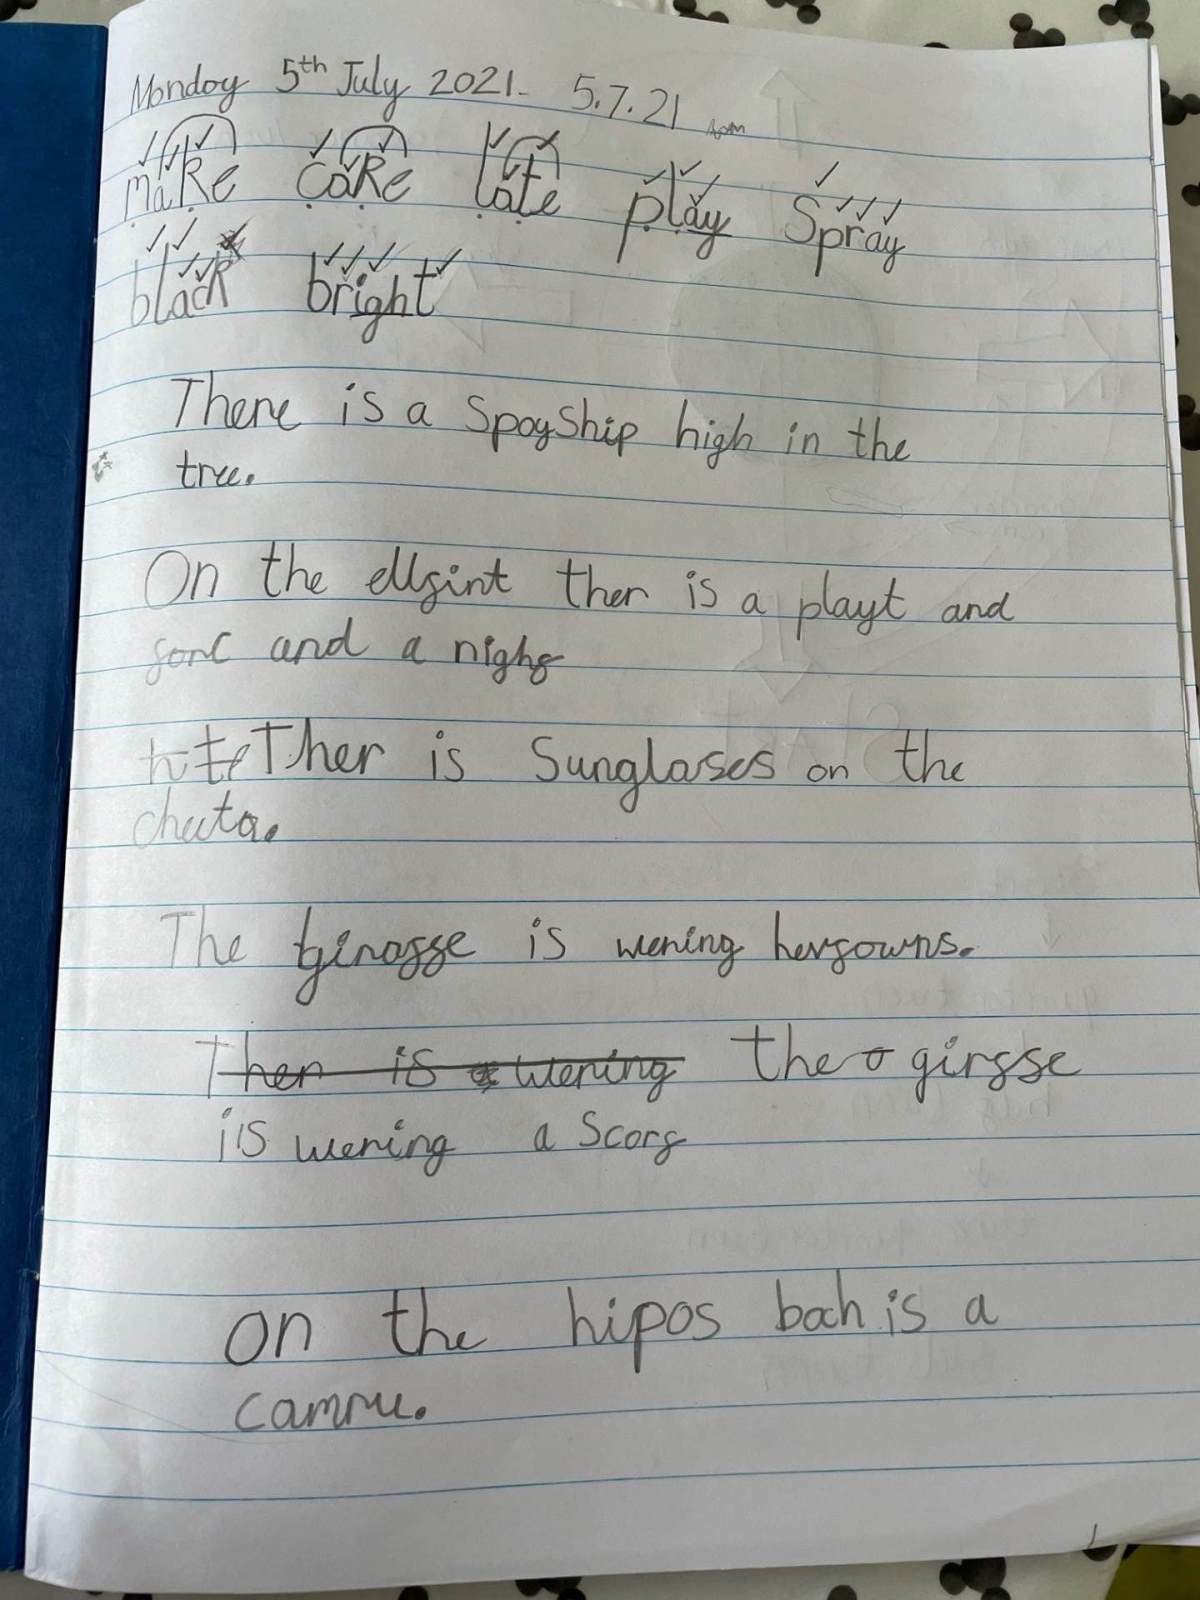 Monday 5th July 2021. 5.7.21
make cake late play Spray
black bright
There is a SpayShip high in the
tree.
On the ellgint ther is a playt and
forc and a nighf
Ther is Sunglases on the
cheeta.
The girasse is wening hergowns.
Ther is a wening the girsse
is wening a Scorf
on the hipos bach is a
camru.